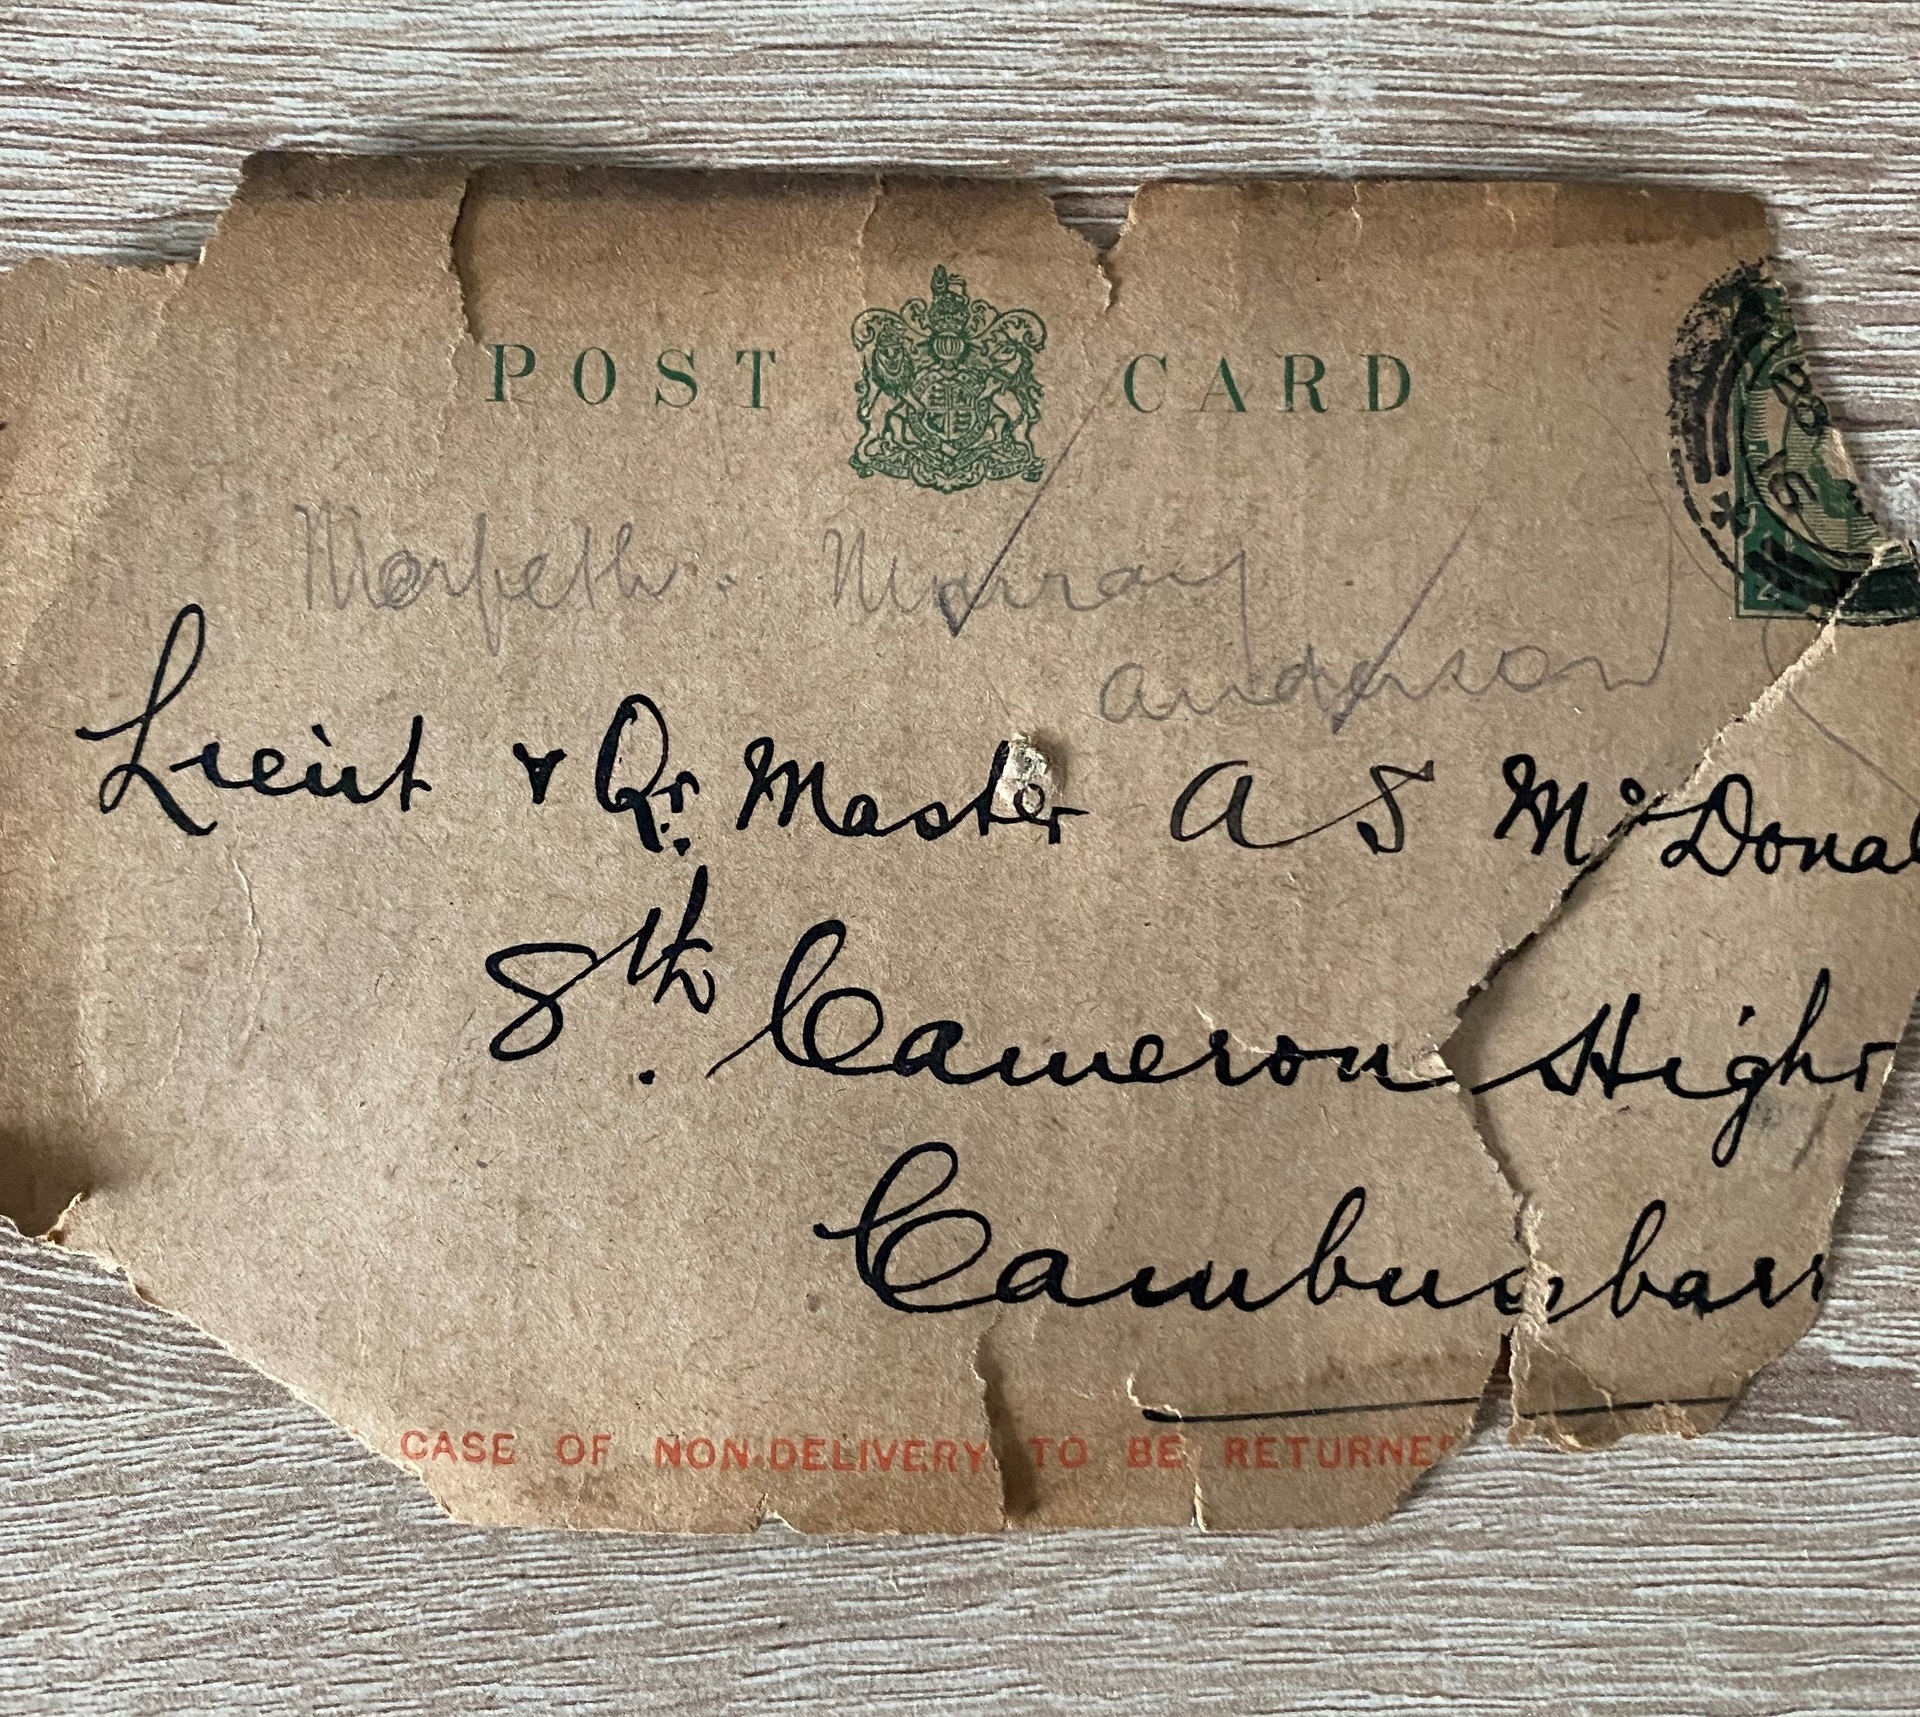 POST CARD
28 15
Morpeth. Murray
anderson
Lieut & Qr. Master A S McDonal
8th. Cameron High
Cambusbarr
CASE OF NON-DELIVERY TO BE RETURNED